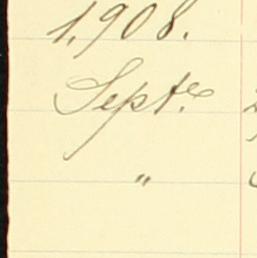 1908.
Septe.
"